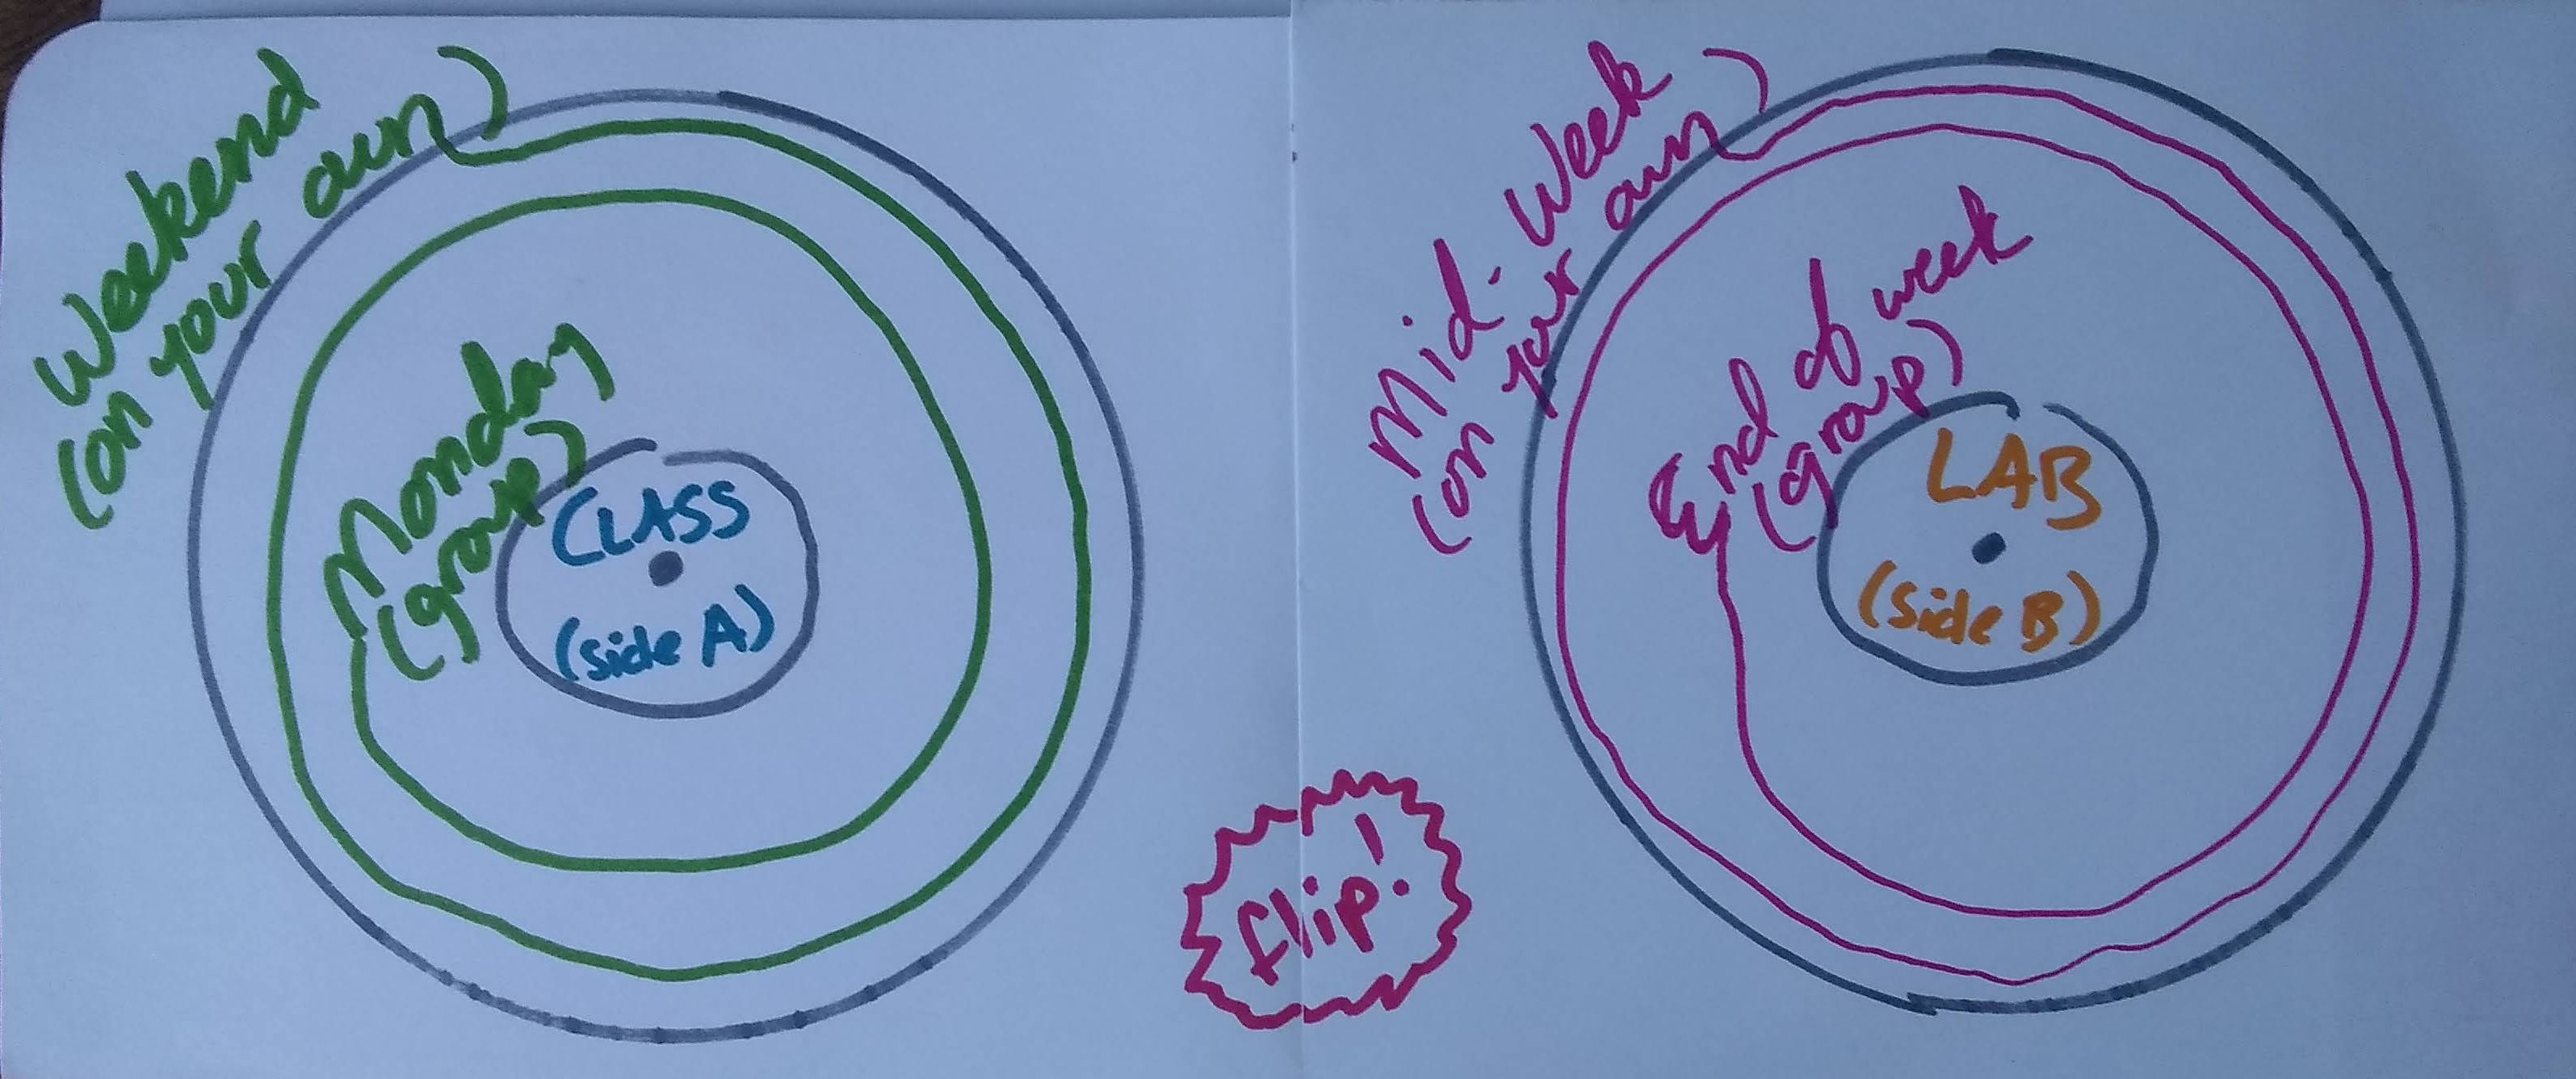 Weekend
(on your own)
Monday
(group)
CLASS
(side A)
flip!
Mid-Week
(on your own)
End of week
(group)
LAB
(side B)